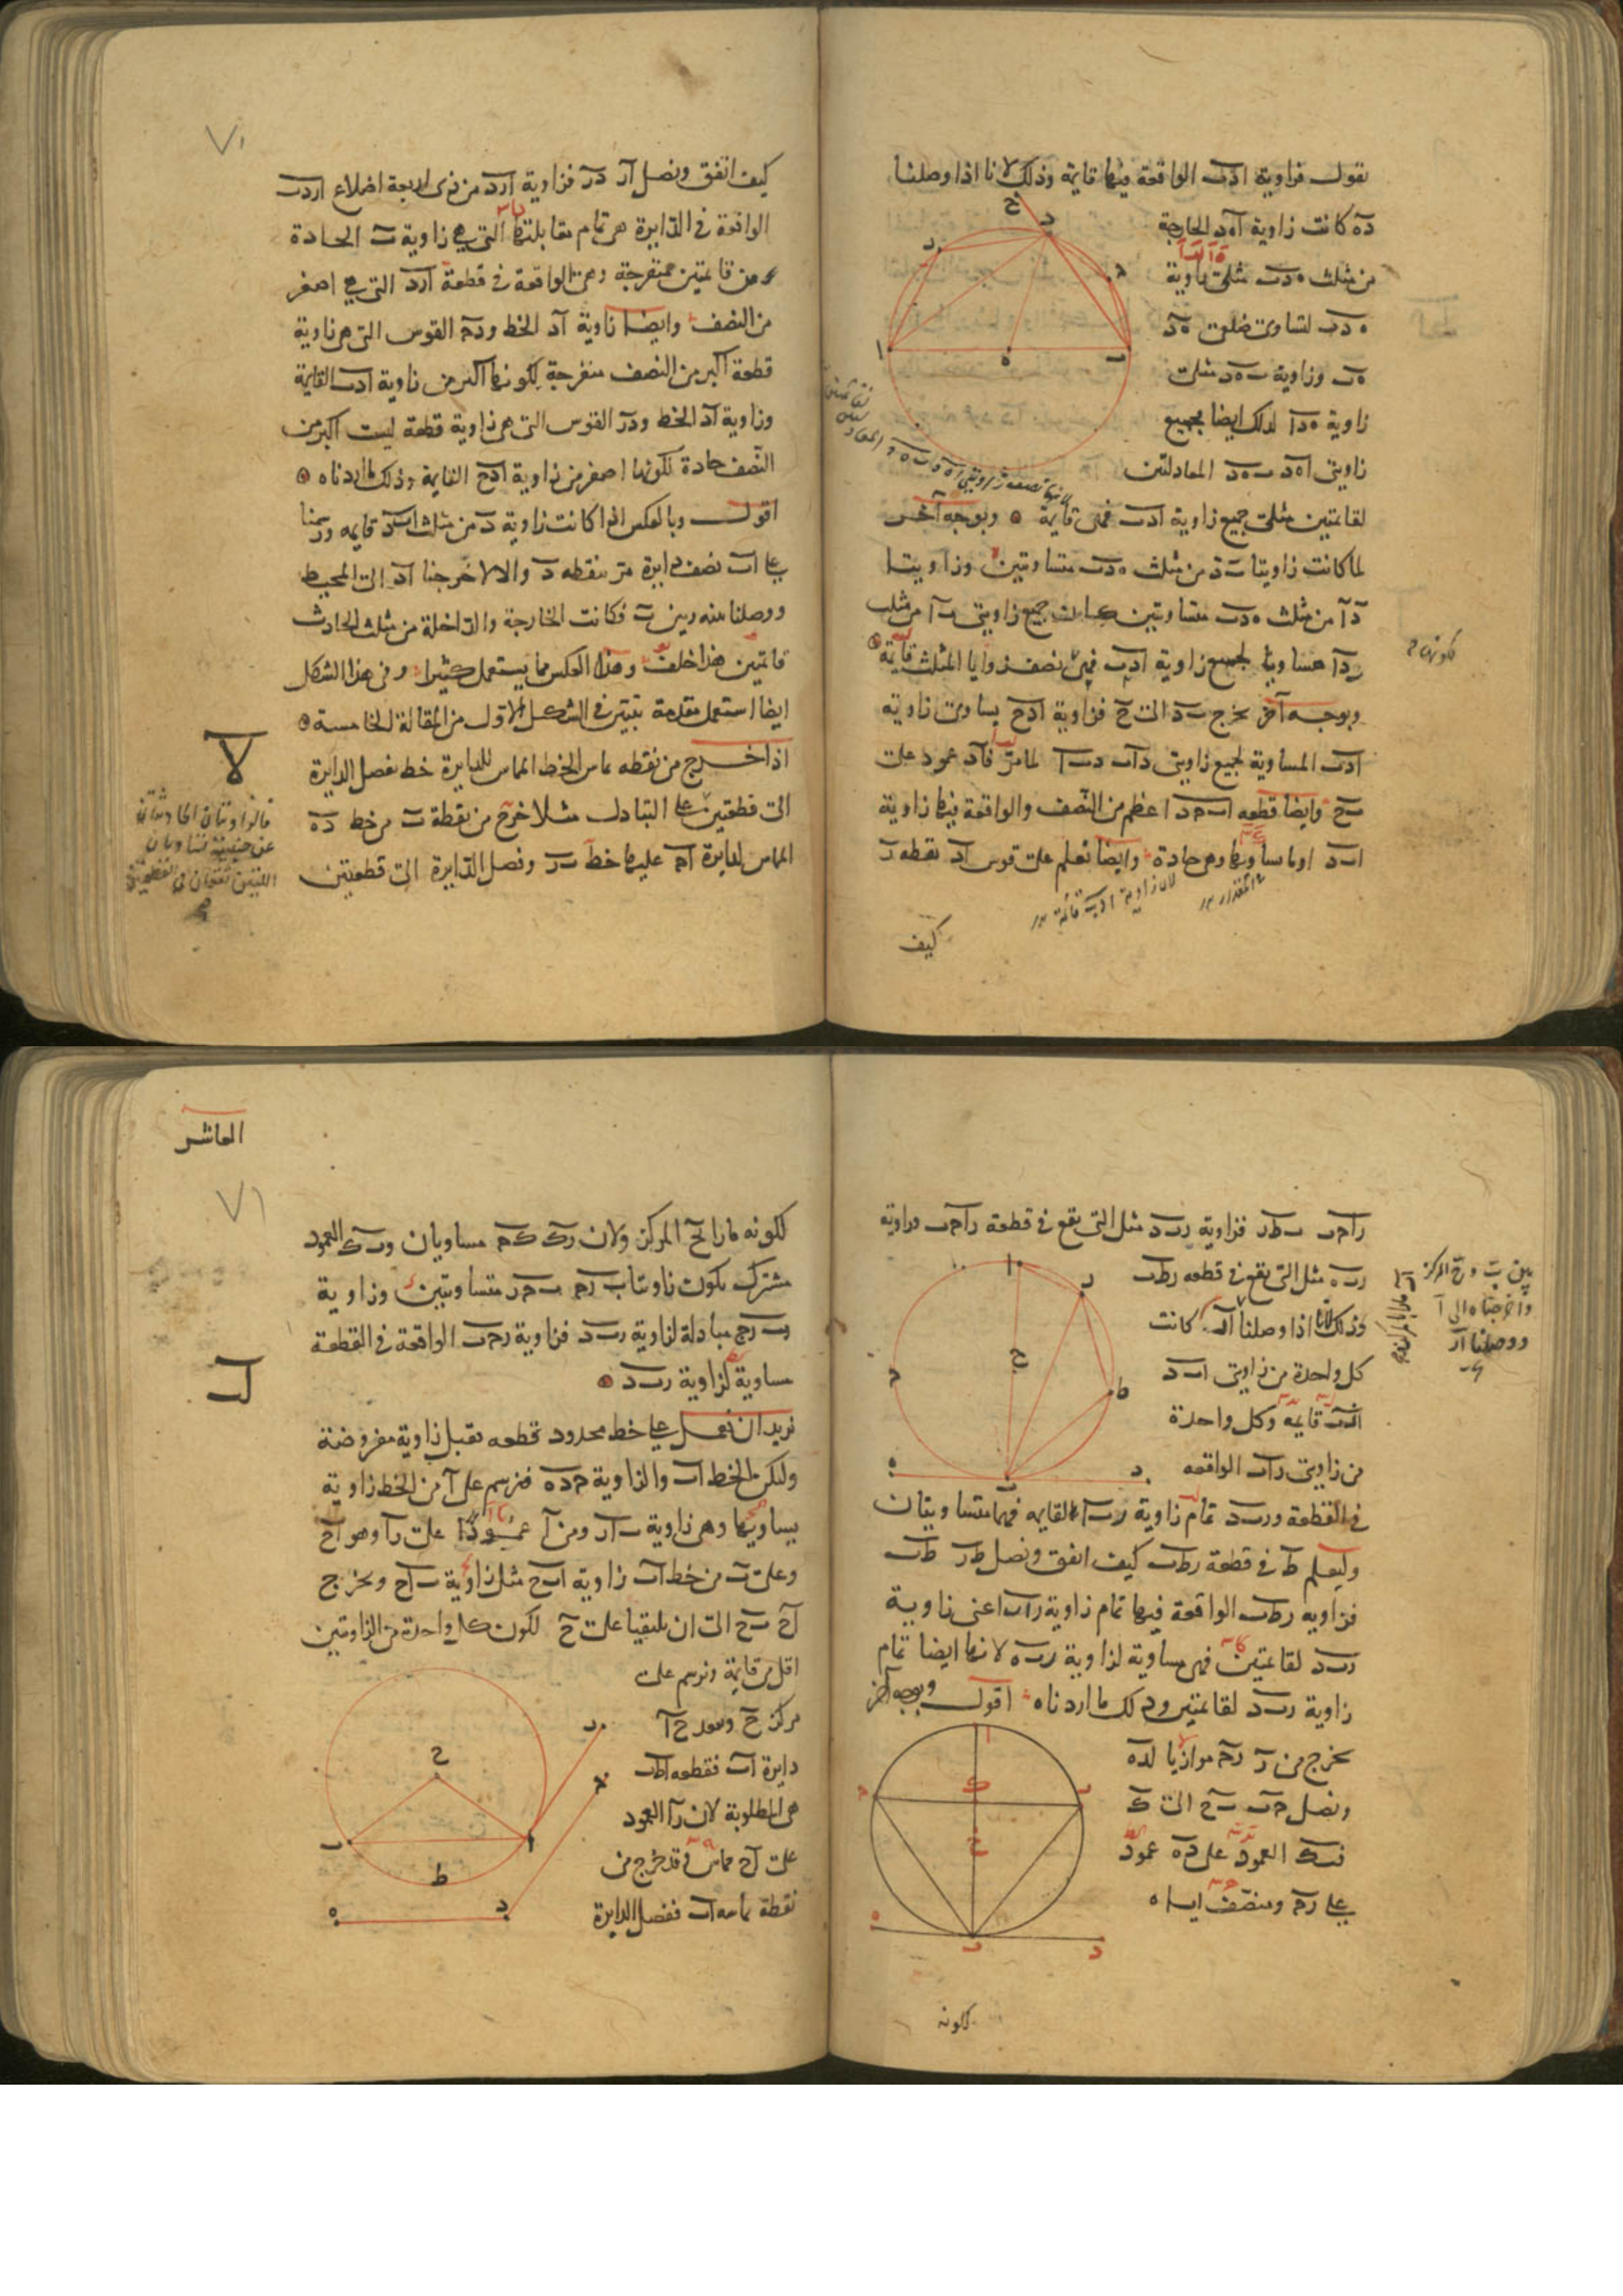 نقول فزاوية ادب الواقعة فيها قايمة وذلك لانا اذا وصلنا
ده كانت زاوية اهد الخارجة
من مثلث هدب مثلى زاوية
هدب لتساوى ضلعى هد
هب وزاوية بهد مثلى
زاوية هدا لذلك ايضا فجميع
زاويتى اهد بهد المعادلتين
لقايمتين مثلى جميع زاوية ادب فهى قايمة وبوجه آخر
لما كانت زاويتا ب د من مثلث هدب متساويتين وزاويتا
د ا من مثلث متساويتين كانت جميع زاويتى ب ا من مثلث
بدا مساويا لجميع زاوية ادب فهى نصف زوايا المثلث قايمة
وبوجه آخر نخرج بد الى ح فزاوية ادح يساوى زاوية
ادب المساوية لجميع زاويتى داب دبا لما مر فاد عمود على
بح وايضا قطعه ابحد اعظم من النصف والواقعة فيها زاوية
ابد اوما ساويها وهى حادة وايضا نعلم على قوس اد نقطه ر
لان زاوية ادب قائمة
كيف
كيف اتفق ونصل ار در فزاوية ارد من ذى اربعة اضلاع اردب
الواقعة فى الدايرة هى تمام مقابلتها التى هى زاوية ب الحادة
من قايمتين منفرجة وهى الواقعة فى قطعة ارد التى هى اصغر
من النصف وايضا زاوية اد الخط ودح القوس التى هى زاوية
قطعة اكبر من النصف منفرجة لكونها اكبر من زاوية ادب القايمة
وزاوية اد الخط ودر القوس التى هى زاوية قطعة ليست اكبر من
النصف حادة لكونها اصغر من زاوية ادح القايمة وذلك ما اردناه
اقول وبالعكس اذا كانت زاوية د من مثلث ابد قايمه ورسمنا
على اب نصف دايرة مر بنقطه د والا لاخرجنا اد الى المحيط
ووصلنا بينه وبين ب فكانت الخارجة والداخلة من مثلث الحادث
قايمتين هذا خلف وهذا العكس مما يستعمل كثيرا وفى هذا الشكل
ايضا استعمل مقدمة تتبين فى الشكل الاول من المقالة الخامسة
لا
اذا خرج من نقطه تماس الخط المماس للدايرة خط يفصل الدايرة
الى قطعتين على التبادل مثلا خرج من نقطة ب من خط ده
المماس لدايرة اح عليها خط بر ونصل الدايرة الى قطعتين
راحب بطر فزاوية ربد مثل التى يقع فى قطعة راحب وزاوية
ربه مثل التى يقع فى قطعه رطب
وذلك لانا اذا وصلنا كانت
كل واحدة من زاويتى ابد
ارب قايمه وكل واحدة
من زاويتى راب الواقعه
فى القطعة وربد تمام زاوية ربا القايمه فهما متساويتان
وليعلم ط فى قطعة رطب كيف اتفق ونصل طر طب
فزاويه رطب الواقعة فيها تمام زاوية راب اعنى زاوية
ربد لقايمتين فهى مساوية لزاوية ربه لانها ايضا تمام
زاوية ربد لقايمتين وذلك ما اردناه اقول وبوجه آخر
نخرج من ر رح موازيا لده
ونصل حب بح الى ك
فبك العمود على ده عمود
على رح ومنصف اياه
لكونه
العاشر
لكونه مارا بح المركز ولان رك كح مساويان وبك العمود
مشترك يكون زاويتا برح بحر متساويتين وزاوية
برح مبادلة لزاوية ربد فزاوية رحب الواقعة فى القطعة
مساوية لزاوية ربد
لب
نريد ان نعمل على خط محدود قطعه تقبل زاوية مفروضة
وليكن الخط اب والزاوية حده فنرسم على ا من الخط زاوية
يساويها وهى زاوية بار ومن ا عمودا على را وهو اح
وعلى ب من خط اب زاوية ابح مثل زاوية باح ونخرج
اح بح الى ان يلتقيا على ح لكون كل واحدة من الزاويتين
اقل من قايمة ونرسم على
مركز ح وببعد حا
دايرة اب فقطعه اطب
هى المطلوبة لان را العمود
على اح مماس وقد خرج من
نقطة تماسه اب ففصل الدايرة